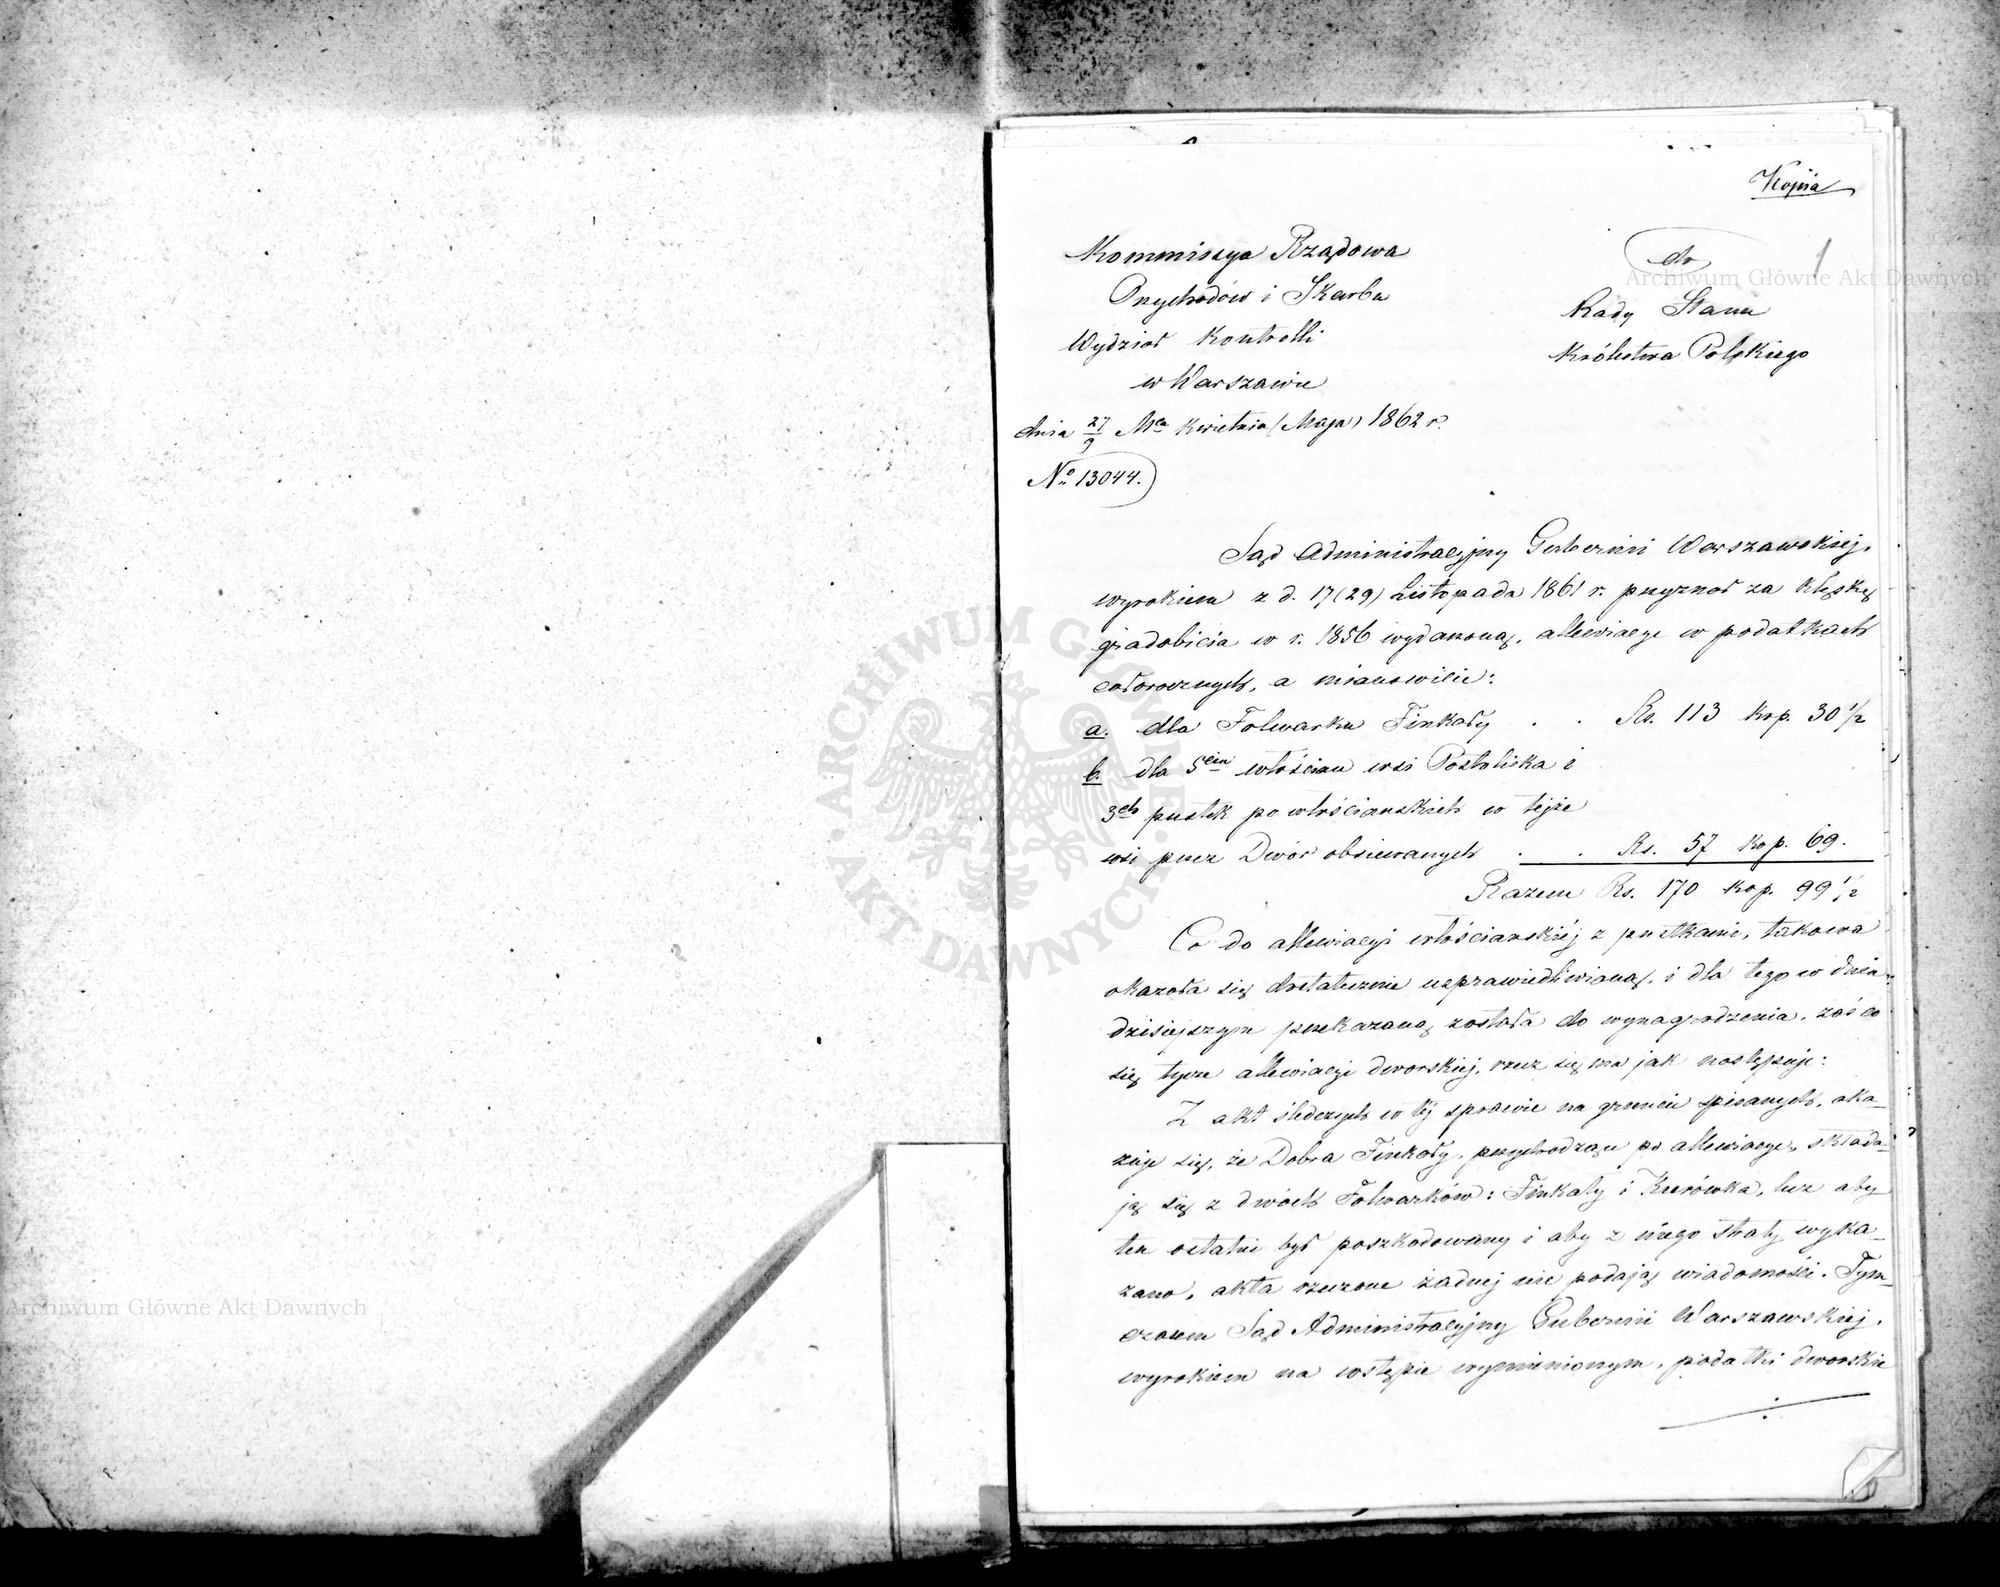 Kopia
Kommissya Rządowa
Przychodów i Skarbu
Wydział Kontrolli
w Warszawie
dnia 27/9 Mca Kwietnia (Maja) 1862 r.
No 13044.
do
Rady Stanu
Królestwa Polskiego
1
Sąd Administracyjny Gubernii Warszawskiej,
wyrokiem z d. 17 (29) Listopada 1861 r. przyznał za klęskę
gradobicia w r. 1856 wydarzoną, allewiacye w podatkach
całorocznych, a mianowicie:
a. dla Folwarku Finkały . . Rs. 113 kop. 30 1/2
b. dla 5ciu włościan wsi Postoliska i
3ch pustek po włościańskich w tejże
wsi przez Dwór obsiewanych . . Rs. 57 kop. 69.
Razem Rs. 170 kop. 99 1/2
Co do allewiacyi włościańskiéj z pustkami, takowa
okazała się dostatecznie usprawiedliwioną, i dla tego w dniu
dzisiejszym przekazaną została do wynagrodzenia, zaś co
się tycze allewiacyi dworskiej, rzecz się ma jak następuje:
Z akt śledczych w téj sprawie na gruncie spisanych, oka-
zuje się, że Dobra Finkały, przychodzące po allewiacye, składa-
ją się z dwóch Folwarków: Finkały i Kurówka, lecz aby
ten ostatni był poszkodowany i aby z niego straty wyka-
zano, akta rzeczone żadnej nie podają wiadomości. Tym-
czasem Sąd Administracyjny Gubernii Warszawskiej,
wyrokiem na wstępie wymienionym, podatki dworskie
Archiwum Główne Akt Dawnych
Archiwum Główne Akt Dawnych
ARCHIWUM GŁÓWNE AKT DAWNYCH